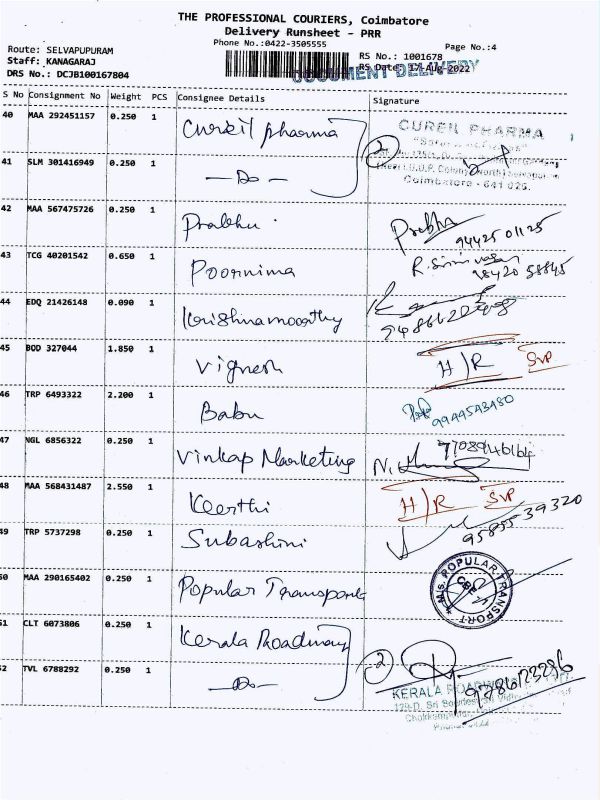 THE PROFESSIONAL COURIERS, Coimbatore
Delivery Runsheet - PRR
Phone No.:0422-3505555
Page No.:4
Route: SELVAPUPURAM
RS No.: 1001678
Staff: KANAGARAJ
RS Date: 17-Aug-2022
DOCUMENT DELIVERY
DRS No.: DCJB100167804
S No Consignment No Weight PCS Consignee Details Signature
40 MAA 292451157 0.250 1 Cureil pharma
CUREIL PHARMA
2
41 SLM 301416949 0.250 1 - Do -
Coimbatore - 641 026.
42 MAA 567475726 0.250 1 Prabhu Prabhu
94425 01125
43 TCG 40201542 0.650 1 Poornima R. Srinivasan
98420 58845
44 EDQ 21426148 0.090 1 Krishnamoorthy
45 BOD 327044 1.850 1 Vignesh H/R SVP
46 TRP 6493322 2.200 1 Babu 9944543480
47 NGL 6856322 0.250 1 Vinkap Marketing
48 MAA 568431487 2.550 1 Keerthi H/R SVP
49 TRP 5737298 0.250 1 Subashini 95855 39320
50 MAA 290165402 0.250 1 Popular Transport
M/S. POPULAR TRANSPORT
CBE
51 CLT 6073806 0.250 1 Kerala Roadway
2
52 TVL 6788292 0.250 1 - Do -
9786123286
KERALA